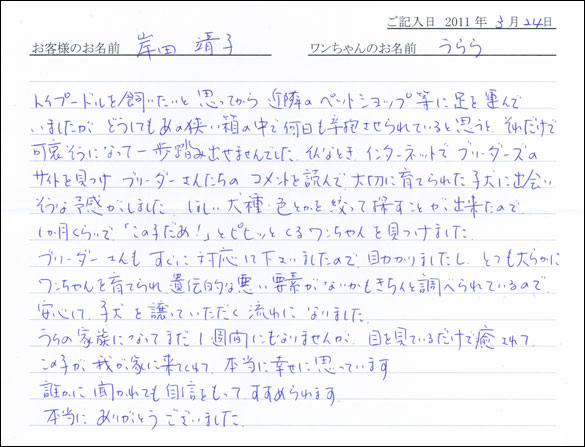 ご記入日 2011年 3月 24日
お客様のお名前 岸田 靖子 ワンちゃんのお名前 うらら
トイプードルを飼いたいと思ってから近隣のペットショップ等に足を運んで
いましたが どうしてもあの狭い箱の中で何日も辛抱させられていると思うと それだけで
可哀そうになって一歩踏み出せませんでした。そんなとき、インターネットでブリーダーズの
サイトを見つけ ブリーダーさんたちの コメントを読んで、大切に育てられた子犬に出会い
そうな予感がしました。 ほしい犬種・色とかを絞って探すことが出来たので、
1か月くらいで「この子だぁ!」とピピッとくるワンちゃんを見つけました。
ブリーダーさんも すぐに対応して下さいましたので、助かりましたし、とても大らかに
ワンちゃんを育てられ 遺伝的な悪い要素がないかもきちんと調べられているので、
安心して、子犬を譲っていただく流れになりました。
うちの家族になってまだ1週間にもなりませんが、目を見ているだけで癒されて、
この子が 我が家に来てくれて、本当に幸せに思っています
誰かに聞かれても自信をもって すすめられます。
本当に ありがとうございました。